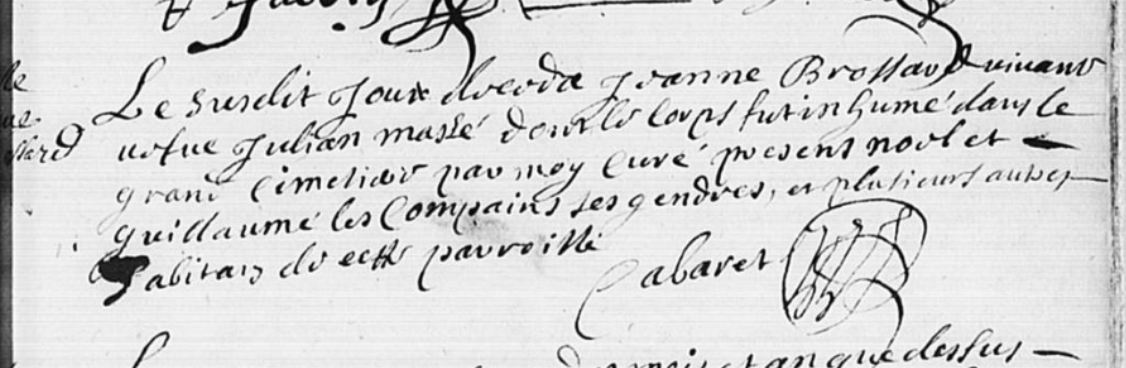 Le susdit Jour deceda Jeanne Brossard vivant
vefve Julian massé dont le corps fut inhumé dans le
grand Cimetiere par moy Curé present noel et
guillaume les Compains ses gendres, et plusieurs autres
habitans de cette parroisse
Cabaret
mois et an que dessus